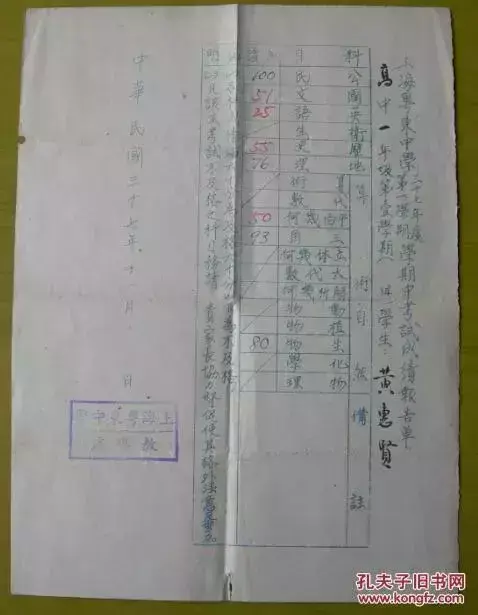 上海粵東中學三十七年度第一學期學期中考試成績報告單
高中一年級第壹學期( )甲學生:黃惠賢
科目
公民 100
國文 51
英語 25
衛生
歷史 55
地理 76
算術
代數
平面幾何 50
三角 93
立体幾何
大代數
解析幾何
動物
植物
生物 80
化學
物理
備註
六十分為及格六十分以下為不及格
凡該生考試不及格之科目務請 貴家長協力督促使其課外注意
中華民國三十七年十一月 日
上海粵東中學
教務處
孔夫子旧书网
www.kongfz.com